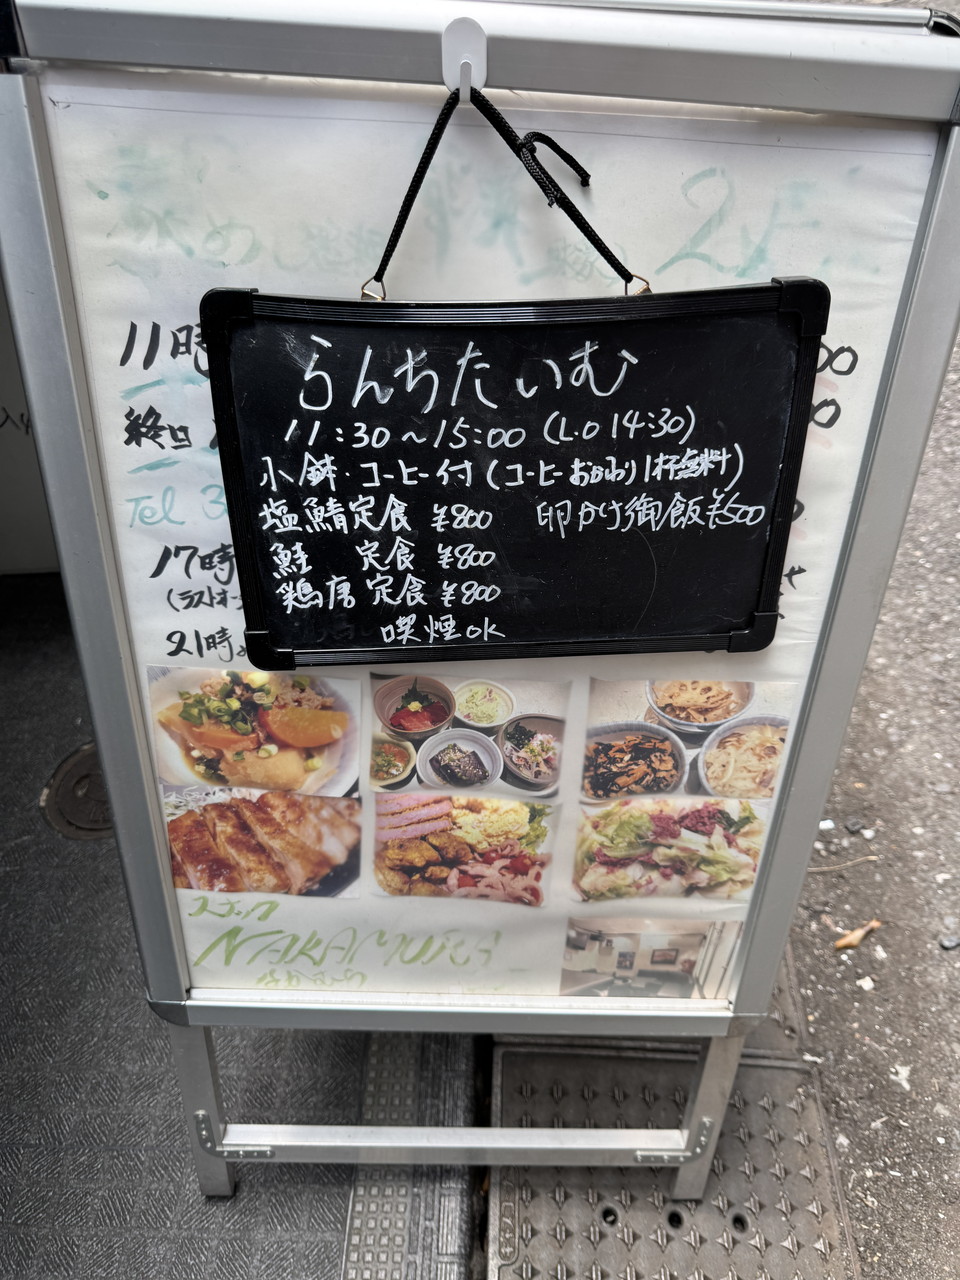 2F
らんちたいむ
11:30~15:00 (L.O 14:30)
小鉢・コーヒー付 (コーヒーおかわり1杯無料)
塩鯖定食 ¥800 卵かけ御飯¥500
鮭 定食 ¥800
鶏唐 定食 ¥800
喫煙ok
11時
終日
Tel 3
17時
(ラストオー
21時
スナック
NAKAMURA
なかむら